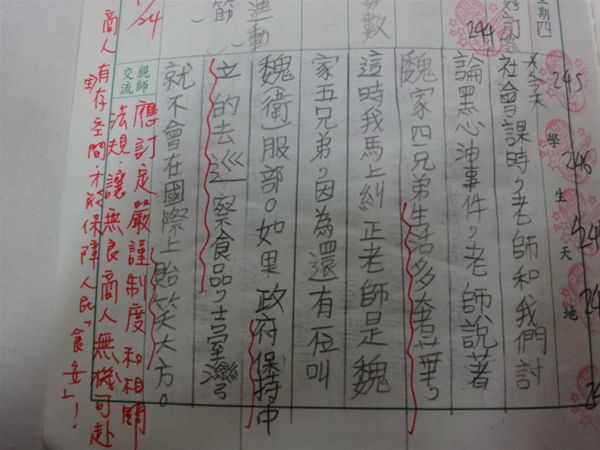 星期四
244
245
學生天地
246
社會課時,老師和我們討
論黑心油事件,老師說著
魏家四兄弟生活多奢華,
這時我馬上糾正老師是魏
家五兄弟,因為還有一位叫
魏(衛)服部。如果政府保持中
立的去巡察食品,台灣
就不會在國際上貽笑大方。
親師
交流
應訂定嚴謹制度和相關
法規,讓無良商人無機可赴
商人有存空間,才能保障人民「食安」!